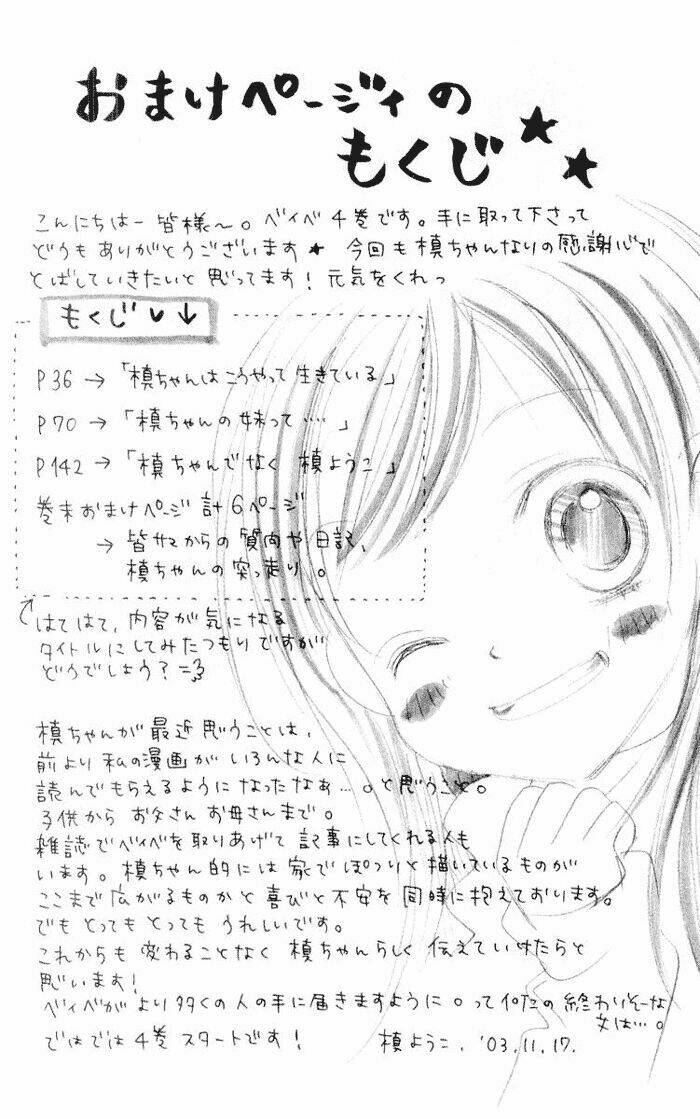 おまけページィの
もくじ★★
こんにちはー皆様〜。ベイベ4巻です。手に取って下さって
どうもありがとうございます★ 今回も槙ちゃんなりの感謝心で
とばしていきたいと思ってます!元気をくれっ
もくじ♥↓
P36→「槙ちゃんはこうやって生きている」
P70→「槙ちゃんの妹って‥‥」
P142→「槙ちゃんでなく 槙ようこ」
巻末おまけページ 計6ページ
→皆サマからの質問や日記、
槙ちゃんの突っ走り。
はてはて、内容が気になる
タイトルにしてみたつもりですが
どうでしょう?
槙ちゃんが最近思うことは、
前より私の漫画がいろんな人に
読んでもらえるようになったなぁ…。と思うこと。
子供からお父さんお母さんまで。
雑誌でベイベを取りあげて記事にしてくれる人も
います。槙ちゃん的には家でぽつりと描いているものが
ここまで広がるものかと喜びと不安を同時に抱えております。
でもとってもとってもうれしいです。
これからも変わることなく槙ちゃんらしく伝えていけたらと
思います!
ベイベがより多くの人の手に届きますように。って の終わりそーな
文は…。
ではでは4巻スタートです! 槙ようこ. '03.11.17.